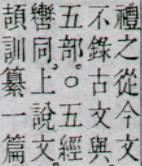 禮之從今文
不錄古文與
五部。五經
轡同上說文
頡訓纂一篇